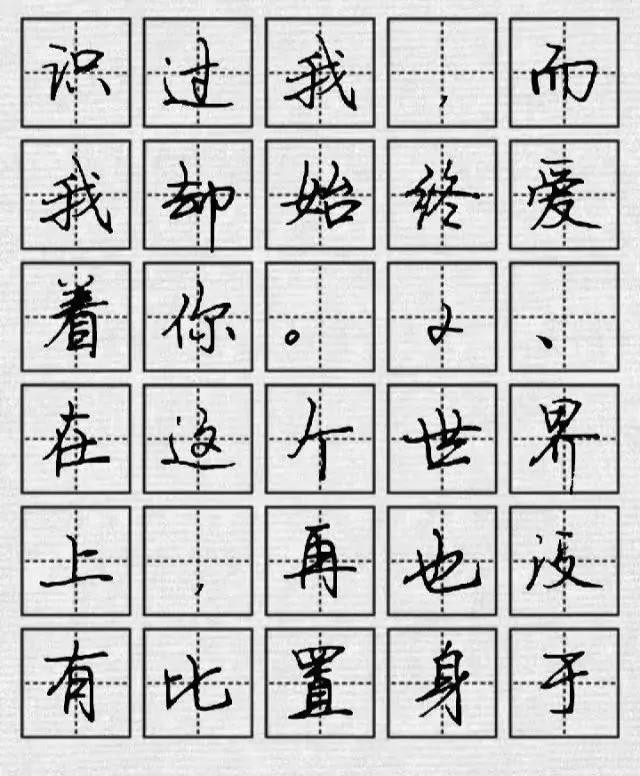 识过我，而
我却始终爱
着你。2、
在这个世界
上，再也没
有比置身于